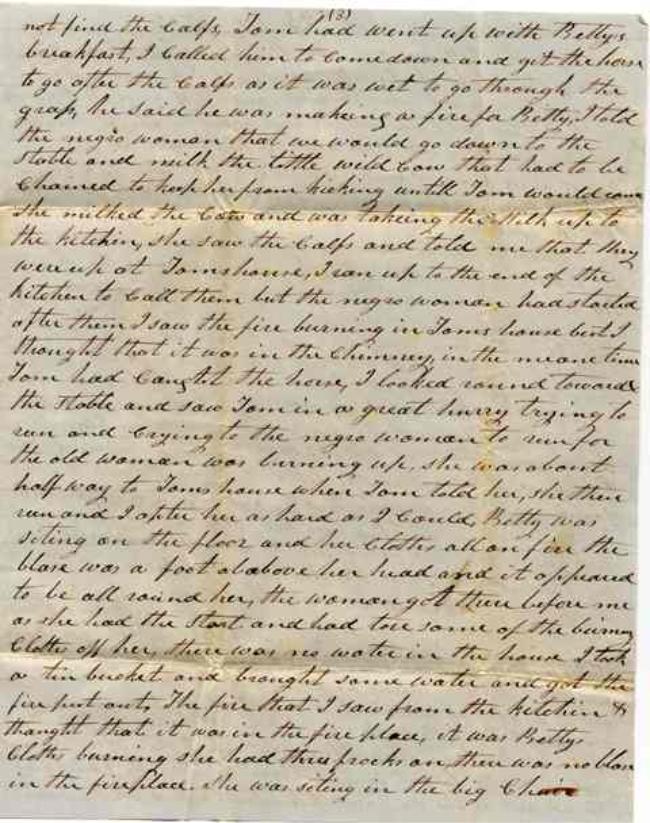 (3)
not find the Calfs, Tom had went up with Bettys
breakfast, I Called him to Come down and get the horse
to go after the Calfs as it was wet to go through the
grass, he said he was making a fire for Betty, I told
the negro woman that we would go down to the
Stable and milk the little wild Cow that had to be
Chained to keep her from kicking untill Tom would come
She milked the Cow and was takeing the Milk up to
the kitchin, she saw the Calfs and told me that they
were up at Toms house, I ran up to the end of the
kitchen to Call them but the negro woman had started
after them I saw the fire burning in Toms house but I
thought that it was in the Chimney, in the meane time
Tom had Caught the horse, I looked round towards
the Stable and saw Tom in a great hurry trying to
run and Crying to the negro woman to run for
the old woman was burning up, she was about
half way to Toms house when Tom told her, she then
run and I after her as hard as I Could, Betty was
siting on the floor and her Cloths all on fire the
blase was a foot ababove her head and it appeared
to be all round her, the woman got there before me
as she had the Start and had tore some of the burning
Cloths off her, there was no water in the house I took
a tin bucket and brought some water and got the
fire put out, The fire that I saw from the kitchin &
thought that it was in the fire place, it was Bettys
Cloths burning she had three frocks on, there was no blase
in the fireplace. She was siting in the big Chair